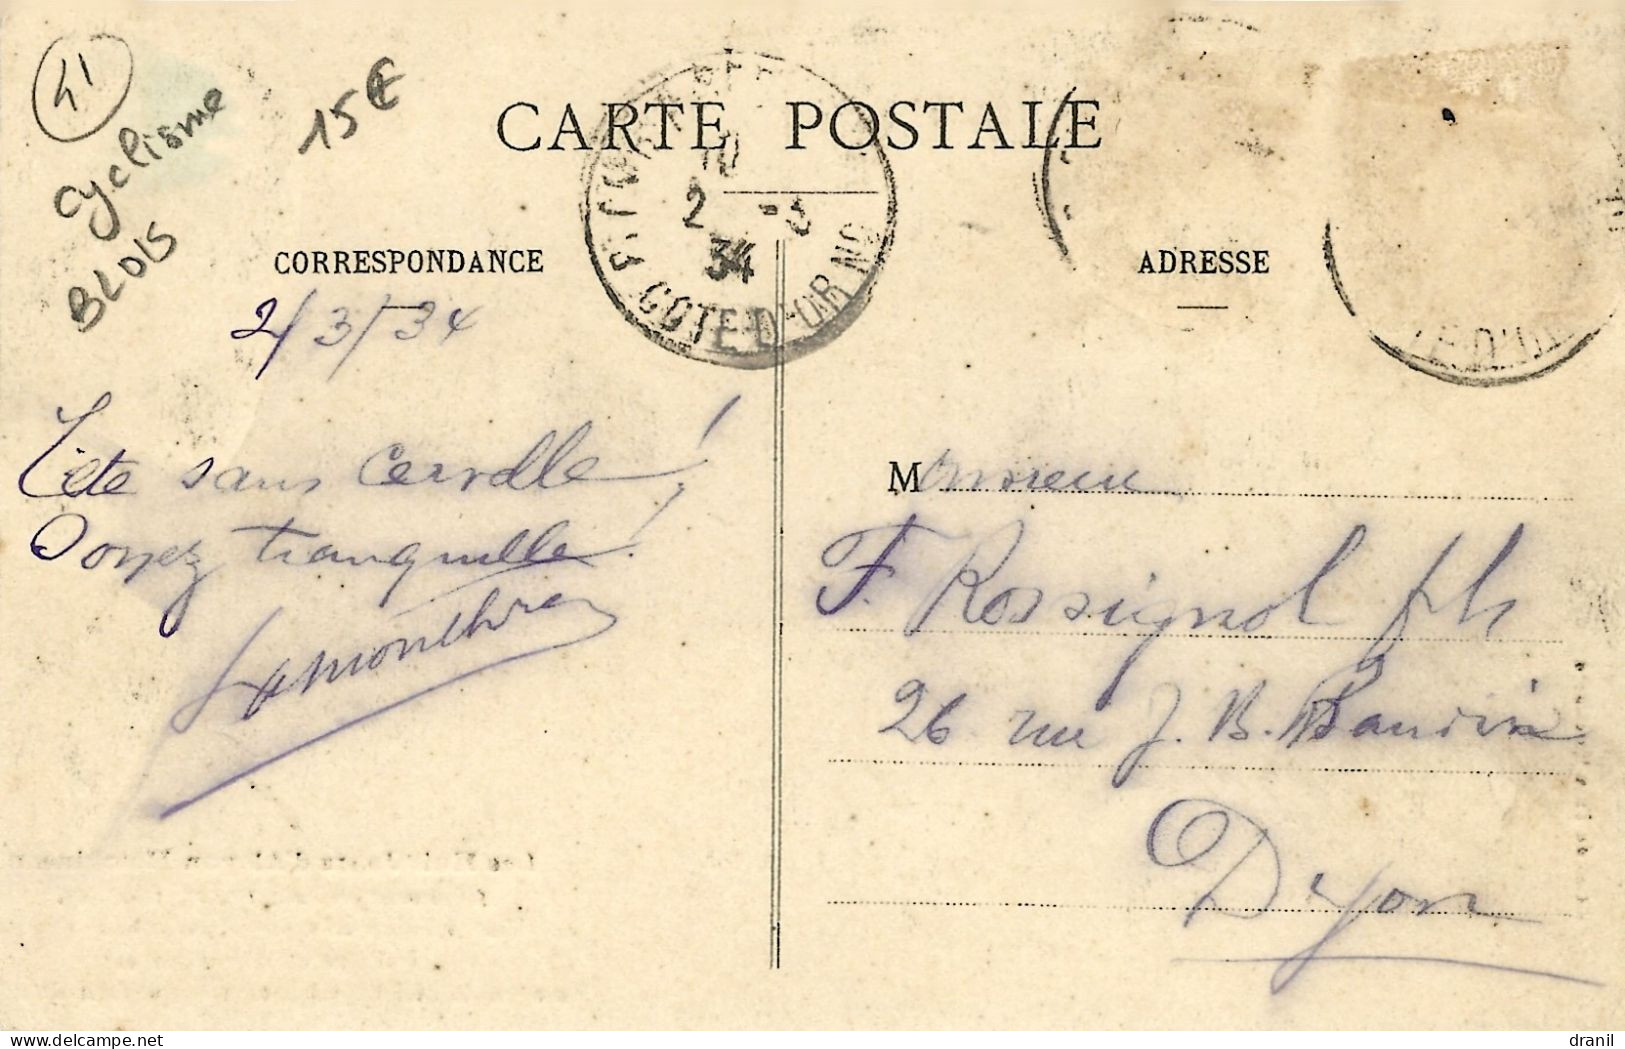 41
Cyclisme
BLOIS
15€
CARTE POSTALE
10
2 -3
34
COTE-D'OR
CORRESPONDANCE
ADRESSE
2/3/34
Tête sans cervelle!
Soyez tranquille!
Monsieur
F. Rossignol fils
26 rue J. B. Baudin
Dijon
delcampe.net
dranil